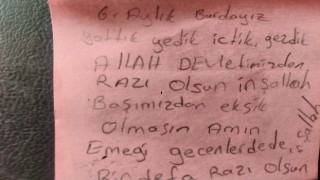 6. Aylık Burdayız
yattık yedik içtik, gezdik
ALLAH DEVletimizden
RAZI Olsun inşallah
Başımızdan eksik
Olmasın Amin
Emeği geçenlerdede, iş
şallah
Bindefa RAZI Olsun